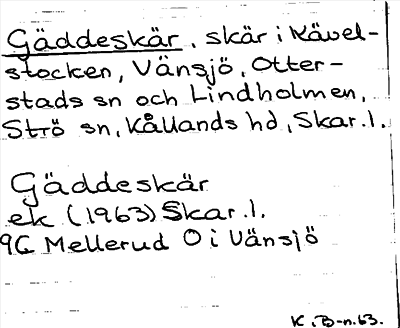 Gäddeskär, skär i Kävel-
stocken, Vänsjö, Otter-
stads sn och Lindholmen,
Strö sn, Kållands hd, Skar.l.
Gäddeskär
ek (1963) Skar.l.
9C Mellerud O i Vänsjö
K.B-n.63.